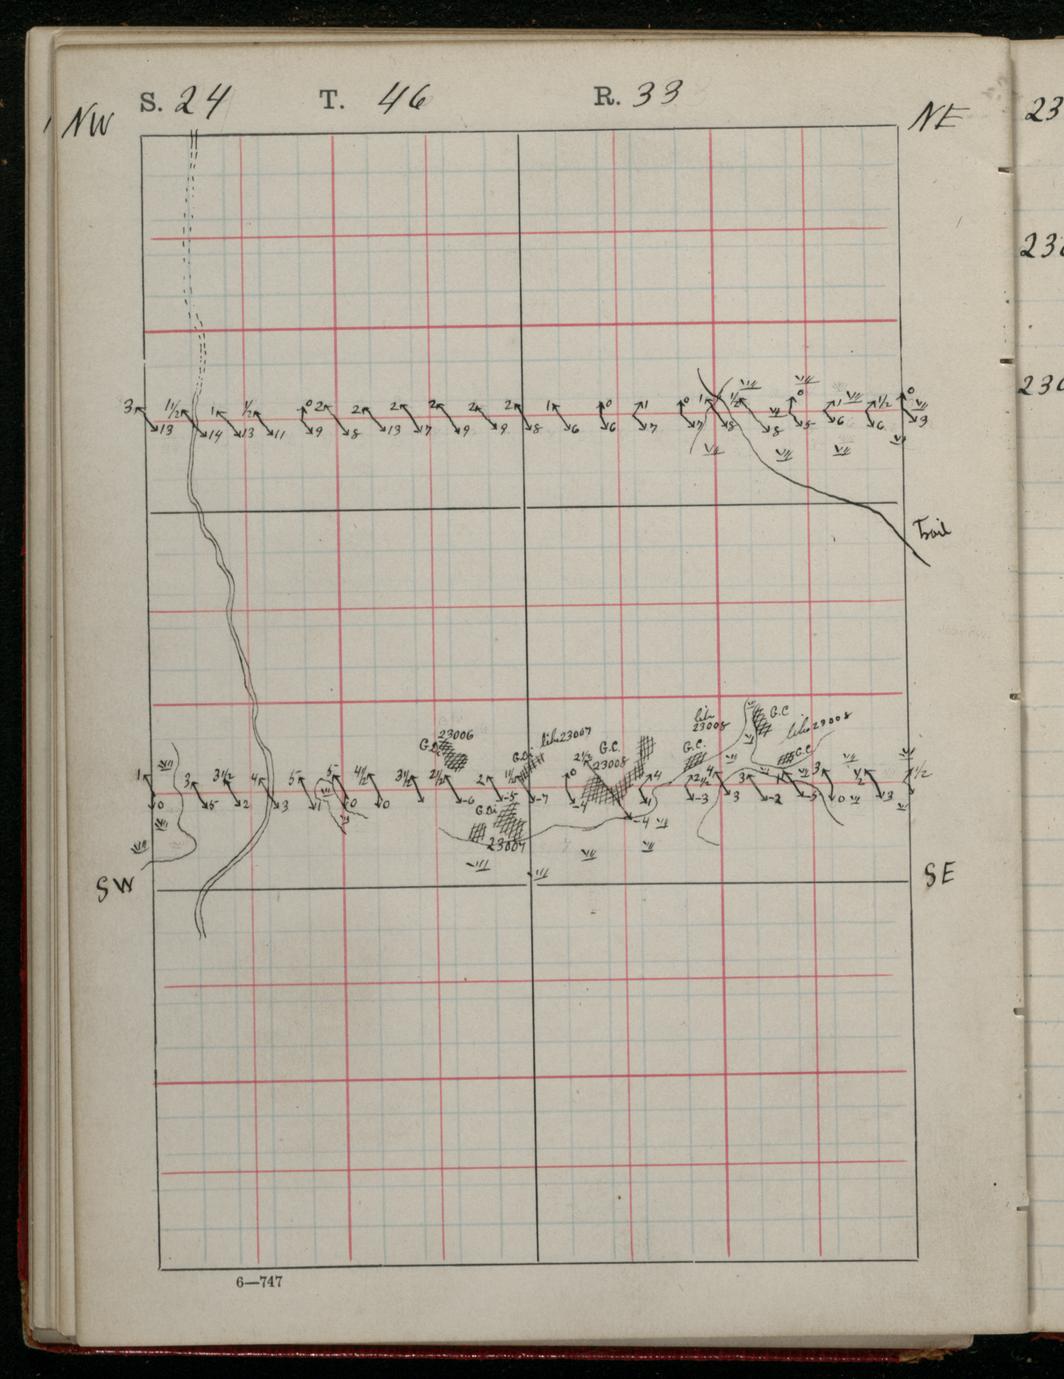 S. 24 T. 46 R. 33
NW NE
3 1 1/2 1 1/2 0 2 2 2 2 2 2 1 0 1 0 1 1/2 0 1 1 1/2 0
13 14 13 11 9 8 13 17 9 9 8 6 6 7 7 8 8 5 6 6 3
Trail
23006
G.Di
like 23007
G.Di
G.C.
23008
like
23008
G.C.
G.C
like 23008
G.C.
1 3 3 1/2 4 5 5 4 1/2 3 1/2 2 1/2 2 1 1/2 0 2 1/2 4 2 1/2 4 3 1 3 1/2 1 1/2
0 5 2 3 1 0 0 -6 -5 -7 -4 -4 1 -3 3 -2 -5 0 3
G.Di
23007
SW SE
6—747
23